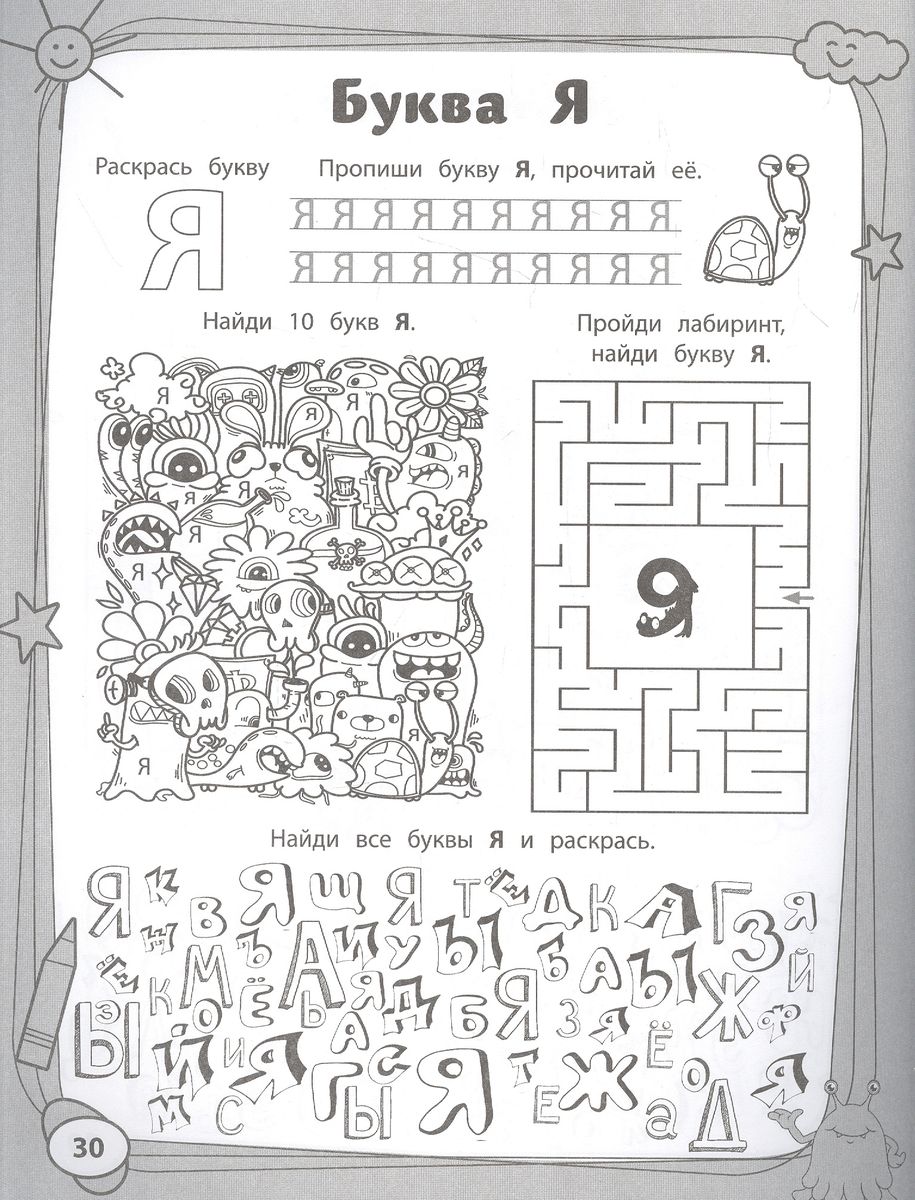 Буква Я
Раскрась букву
Пропиши букву Я, прочитай её.
Я
Я Я Я Я Я Я Я Я Я Я
Я Я Я Я Я Я Я Я Я Я
Найди 10 букв Я.
Пройди лабиринт,
найди букву Я.
Я
Я
Я
Я
Я
Я
Я
Я
Я
Я
Я
Найди все буквы Я и раскрась.
Я К В Я Щ Я Т Ё Д К А Г З Я
Н М Ъ А И У Ы Б А Ы Ж Й
Ё К Ё Ь Я Д Б Я З Я Ф
Ы З Й О И Я А Г С Я Т Ж Ё О Я
М С Ы Е а Д
30